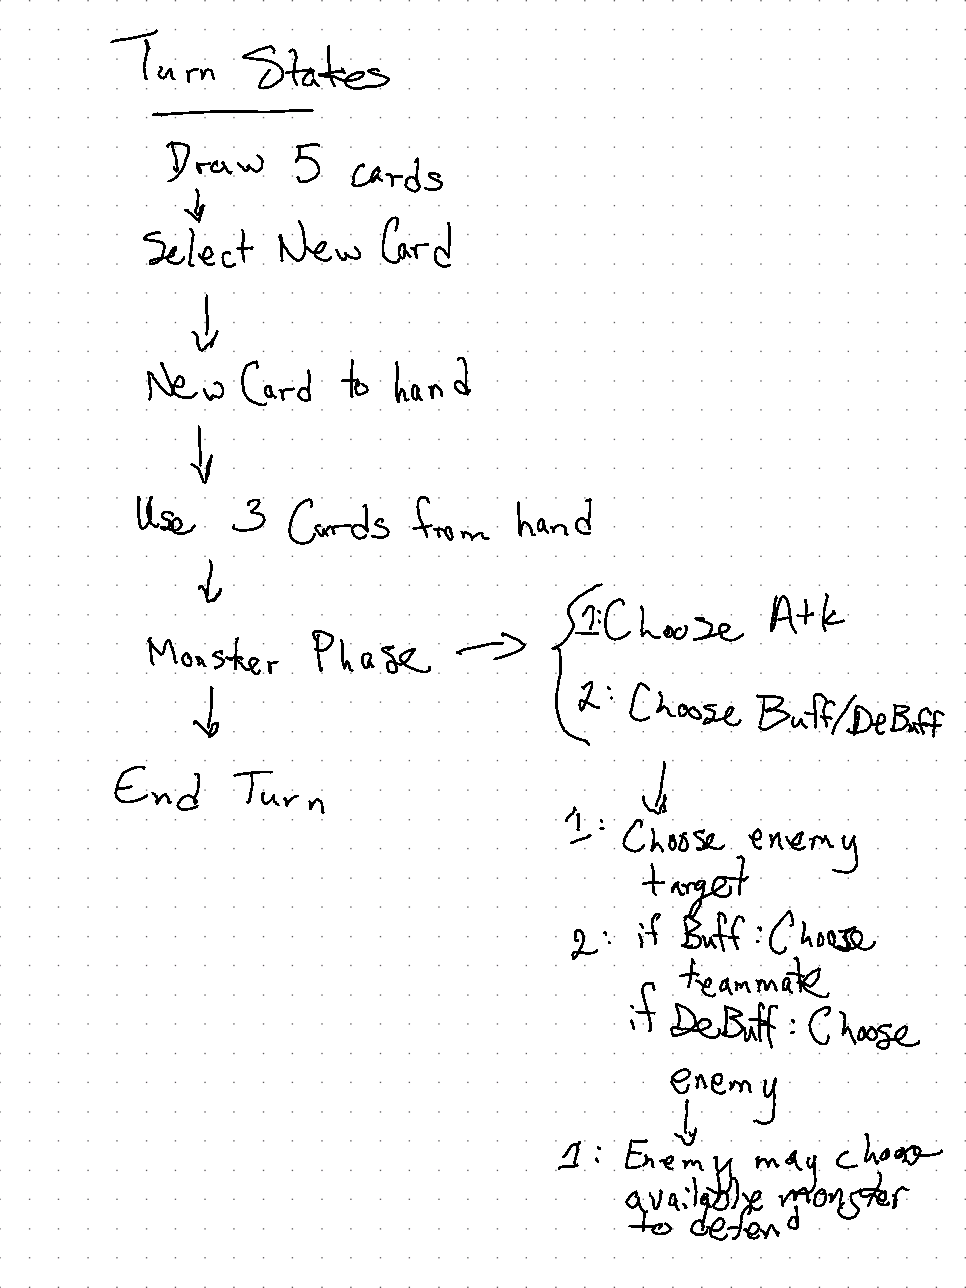 Turn States
Draw 5 cards
Select New Card
New Card to hand
Use 3 Cards from hand
Monster Phase
End Turn
1: Choose Atk
2: Choose Buff/DeBuff
1: Choose enemy
target
2: if Buff: Choose
teammate
if DeBuff: Choose
enemy
1: Enemy may choose
available monster
to defend